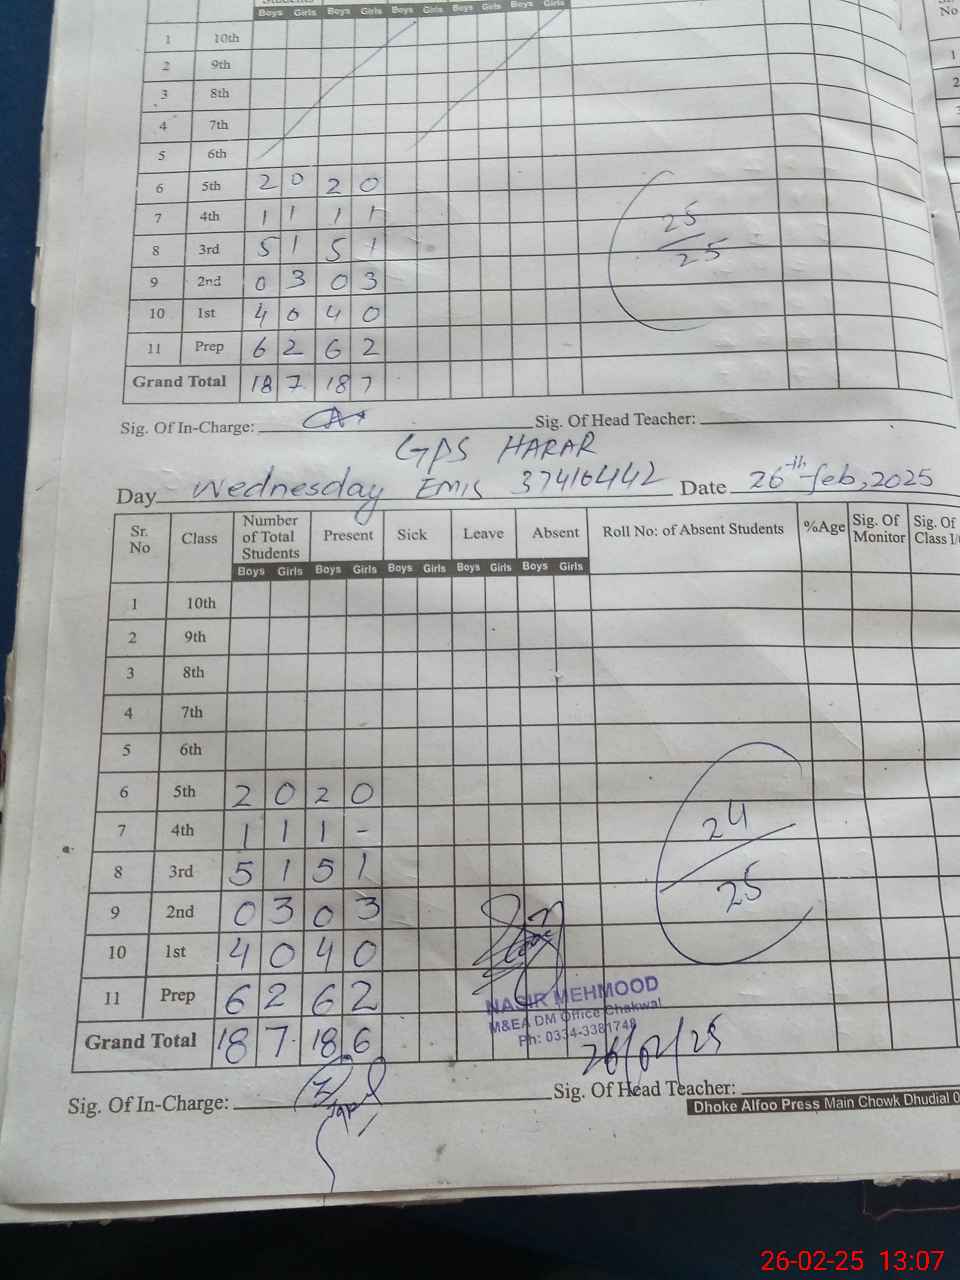 Students
Boys Girls Boys Girls Boys Girls Boys Girls
No
1 10th
2 9th
3 8th
4 7th
5 6th
6 5th 2 0 2 0
7 4th 1 1 1 1
8 3rd 5 1 5 1
9 2nd 0 3 0 3
10 1st 4 0 4 0
11 Prep 6 2 6 2
Grand Total 18 7 18 7
25
25
Sig. Of In-Charge: Sig. Of Head Teacher:
GPS HARAR
Day Wednesday EMIS 37416442 Date 26th Feb, 2025
Sr. No Class Number of Total Students Present Sick Leave Absent Roll No: of Absent Students %Age Sig. Of Monitor Sig. Of Class I/
Boys Girls Boys Girls Boys Girls Boys Girls Boys Girls
1 10th
2 9th
3 8th
4 7th
5 6th
6 5th 2 0 2 0
7 4th 1 1 1 -
8 3rd 5 1 5 1
9 2nd 0 3 0 3
10 1st 4 0 4 0
11 Prep 6 2 6 2
Grand Total 18 7 18 6
24
25
NASIR MEHMOOD
M&EA DM Office Chakwal
Ph: 0334-3381748
26/02/25
Sig. Of In-Charge: Sig. Of Head Teacher:
Dhoke Alfoo Press Main Chowk Dhudial 0
26-02-25 13:07